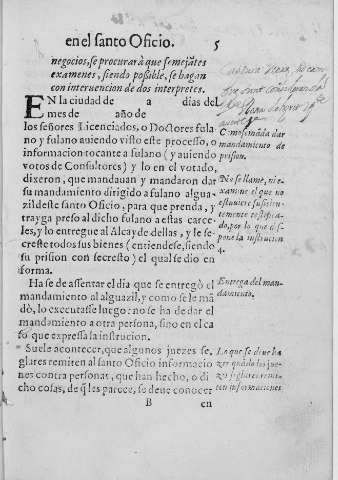 en el santo Oficio.
5
negocios, se procurarà que semejãtes
examenes, siendo posible, se hagan
con interuencion de dos interpretes.
EN la ciudad de a dias del
mes de año de
los señores Licenciados, o Doctores fula
no y fulano auiendo visto este processo, o
informacion tocante a fulano (y auiendo
votos de Consultores) y lo en el votado,
dixeron, que mandauan y mandaron dar
su mandamiento dirigido a fulano algua
zil deste santo Oficio, para que prenda, y
trayga preso al dicho fulano a estas carce-
les, y lo entregue al Alcayde dellas, y le se-
creste todos sus bienes (entiendese, siendo
su prision con secresto) el qual se dio en
forma.
Ha se de assentar el dia que se entregò el
mandamiento al alguazil, y como se le mã
dò, lo executasse luego: no se ha de dar el
mandamiento a otra persona, sino en el ca
so que expressa la instrucion.
Suele acontecer, que algunos juezes se-
glares remiten al santo Oficio informacio
nes contra personas, que han hecho, o di
cho cosas, de q̃ les parece, se deue conocer
B
en
Como se mãda dar
mandamiento de
prision.
No se llame, ni e-
xamine el que no
estuuiere suficien-
temente testifica-
do, por lo que dis-
pone la instrucion
4.
Entrega del man-
damiento.
Lo que se deue ha
zer quãdo los jue-
zes seglares remi-
ten informaciones